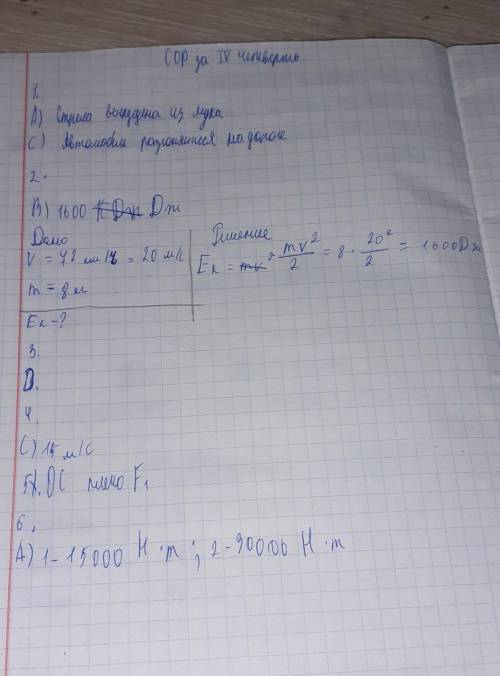 СОР за IV четверть
1.
А) Стрела выпущена из лука
С) Автомобиль разгоняется на дороге
2.
В) 1600 К Дж Дж
Дано
V = 72 км/ч = 20 м/с
m = 8 кг
Ек - ?
Решение
Ек = mv² mv²/2 = 8 · 20²/2 = 1600 Дж
3.
D.
4
С) 15 м/с
5. ОС плечо F₁
6.
А) 1-15000 Н·m ; 2-30000 Н·m